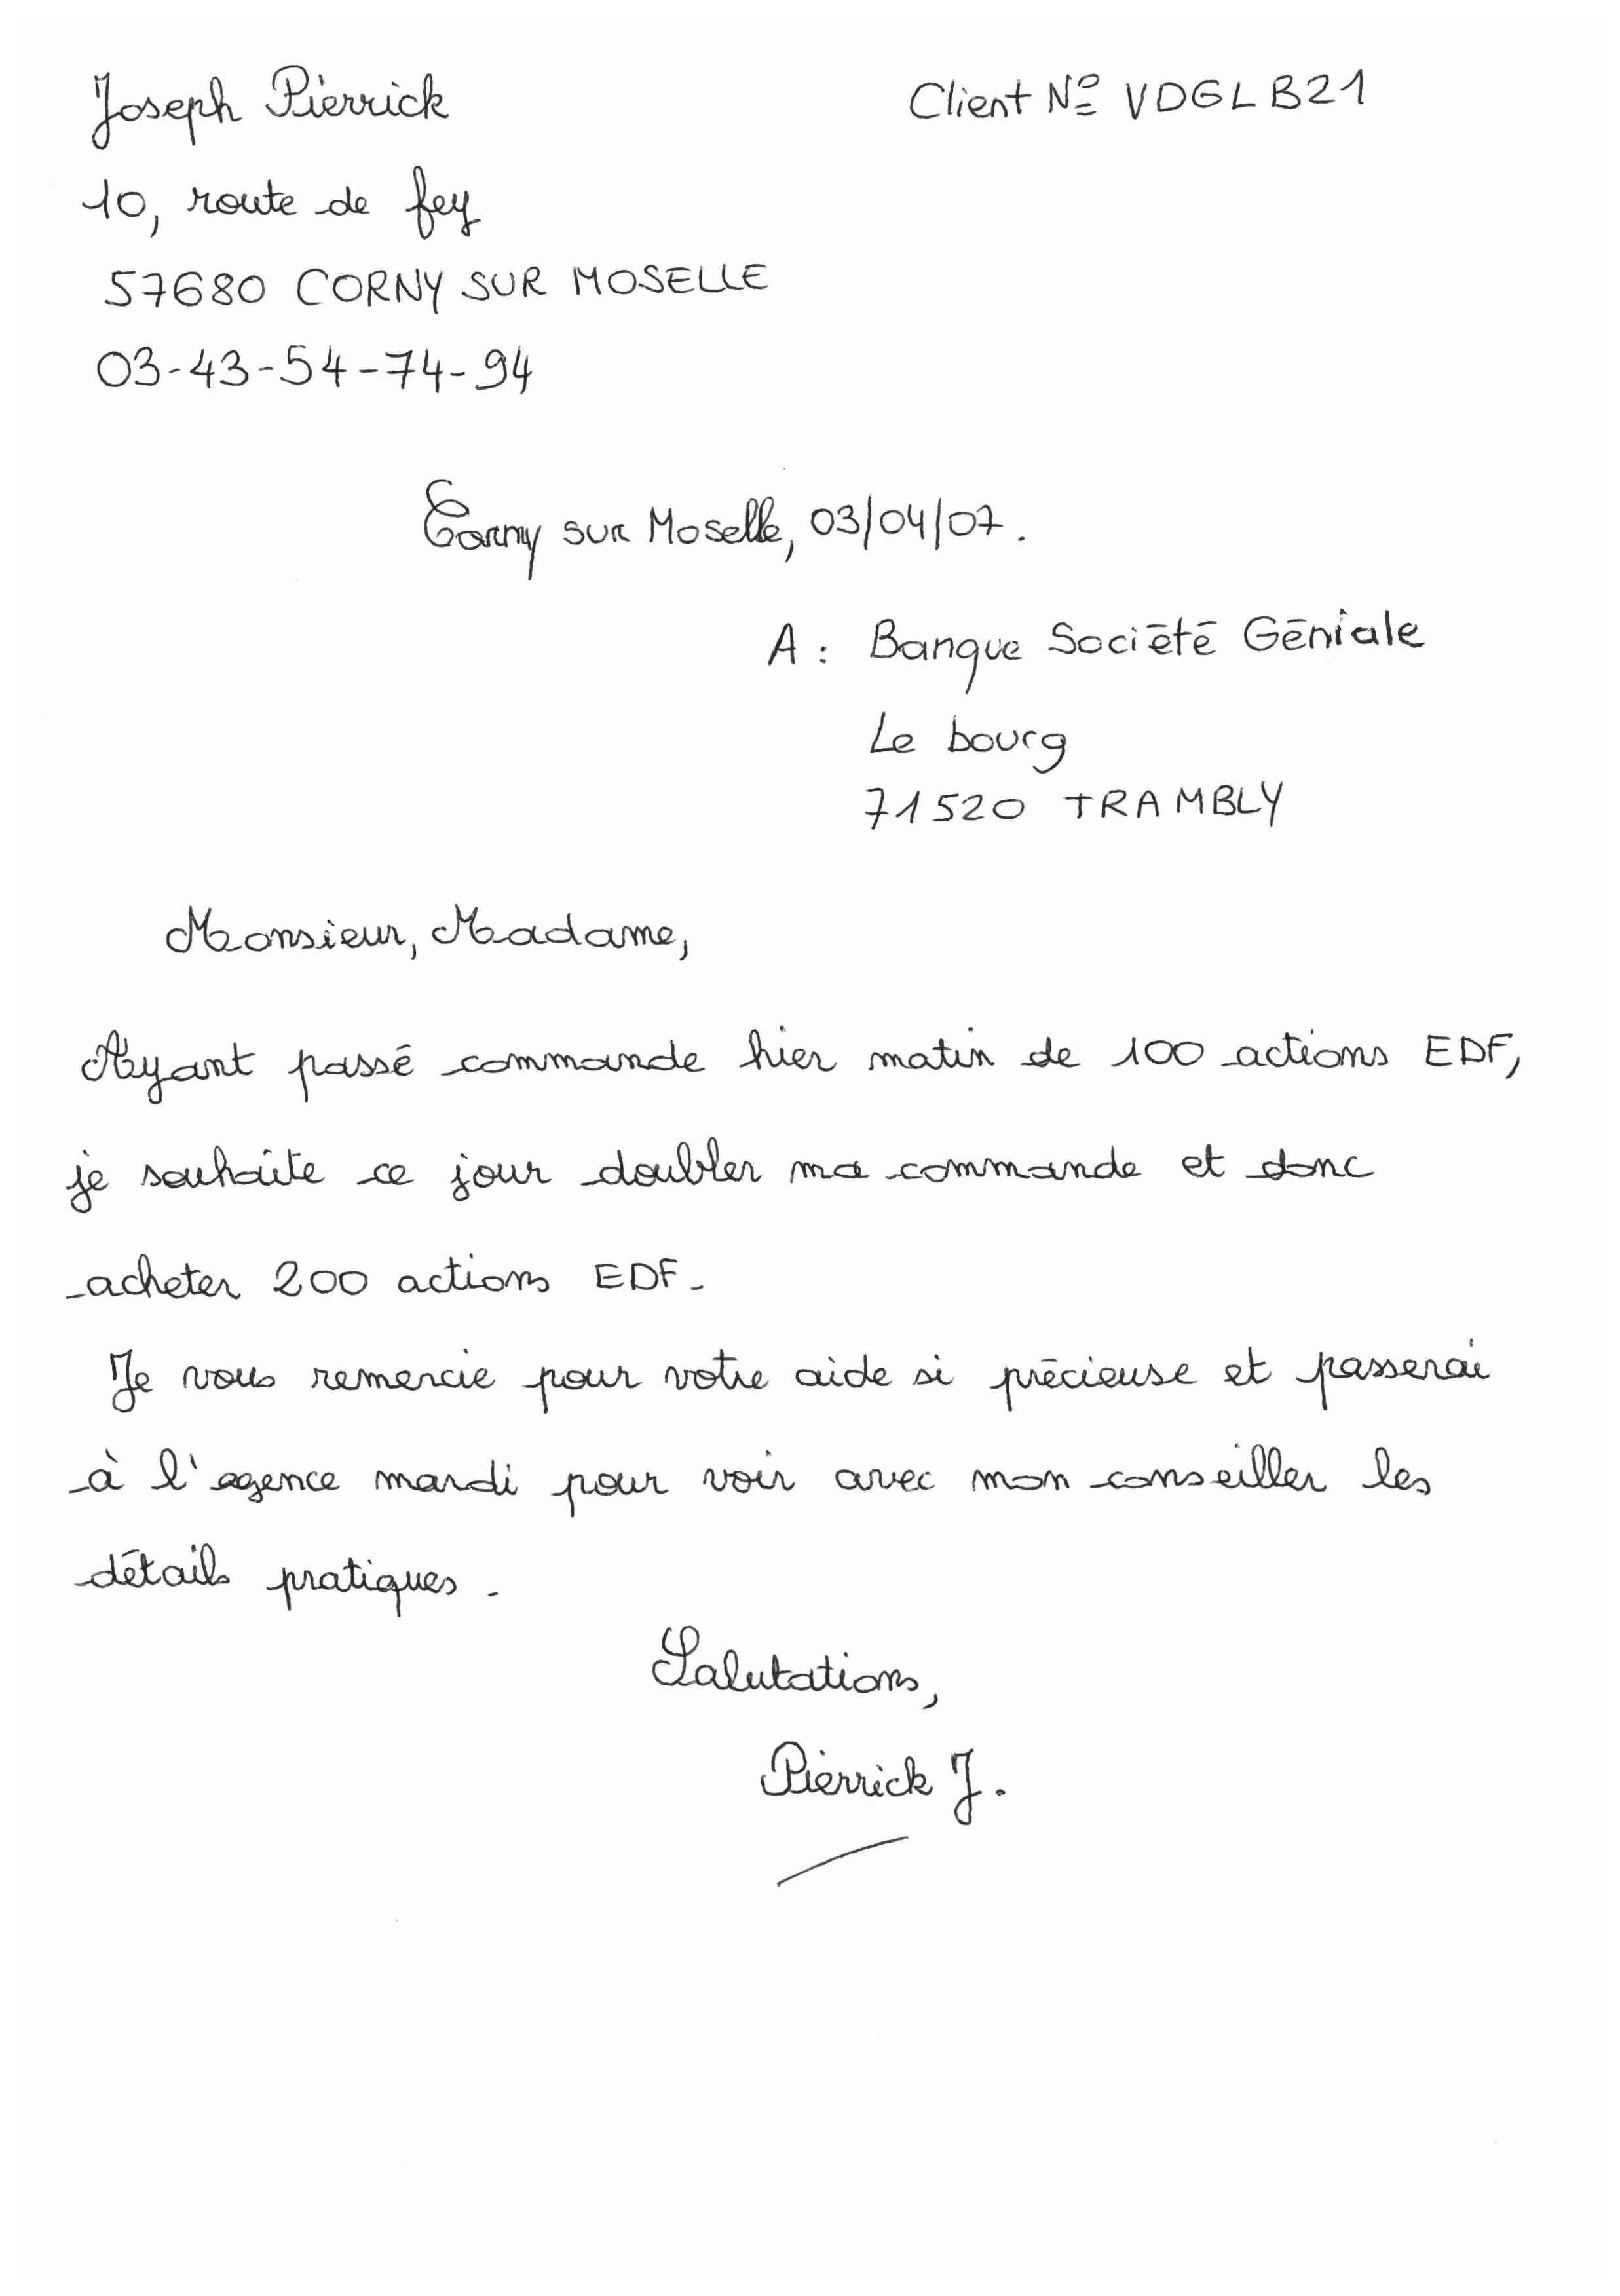 Joseph Pierrick
Client Nº VDGLB21
10, route de fey
57680 CORNY SUR MOSELLE
03-43-54-74-94
Corny sur Moselle, 03/04/07.
A : Banque Société Géniale
Le bourg
71520 TRAMBLY
Monsieur, Madame,
Ayant passé commande hier matin de 100 actions EDF,
je souhaite ce jour doubler ma commande et donc
acheter 200 actions EDF.
Je vous remercie pour votre aide si précieuse et passerai
à l'agence mardi pour voir avec mon conseiller les
détails pratiques.
Salutations,
Pierrick J.